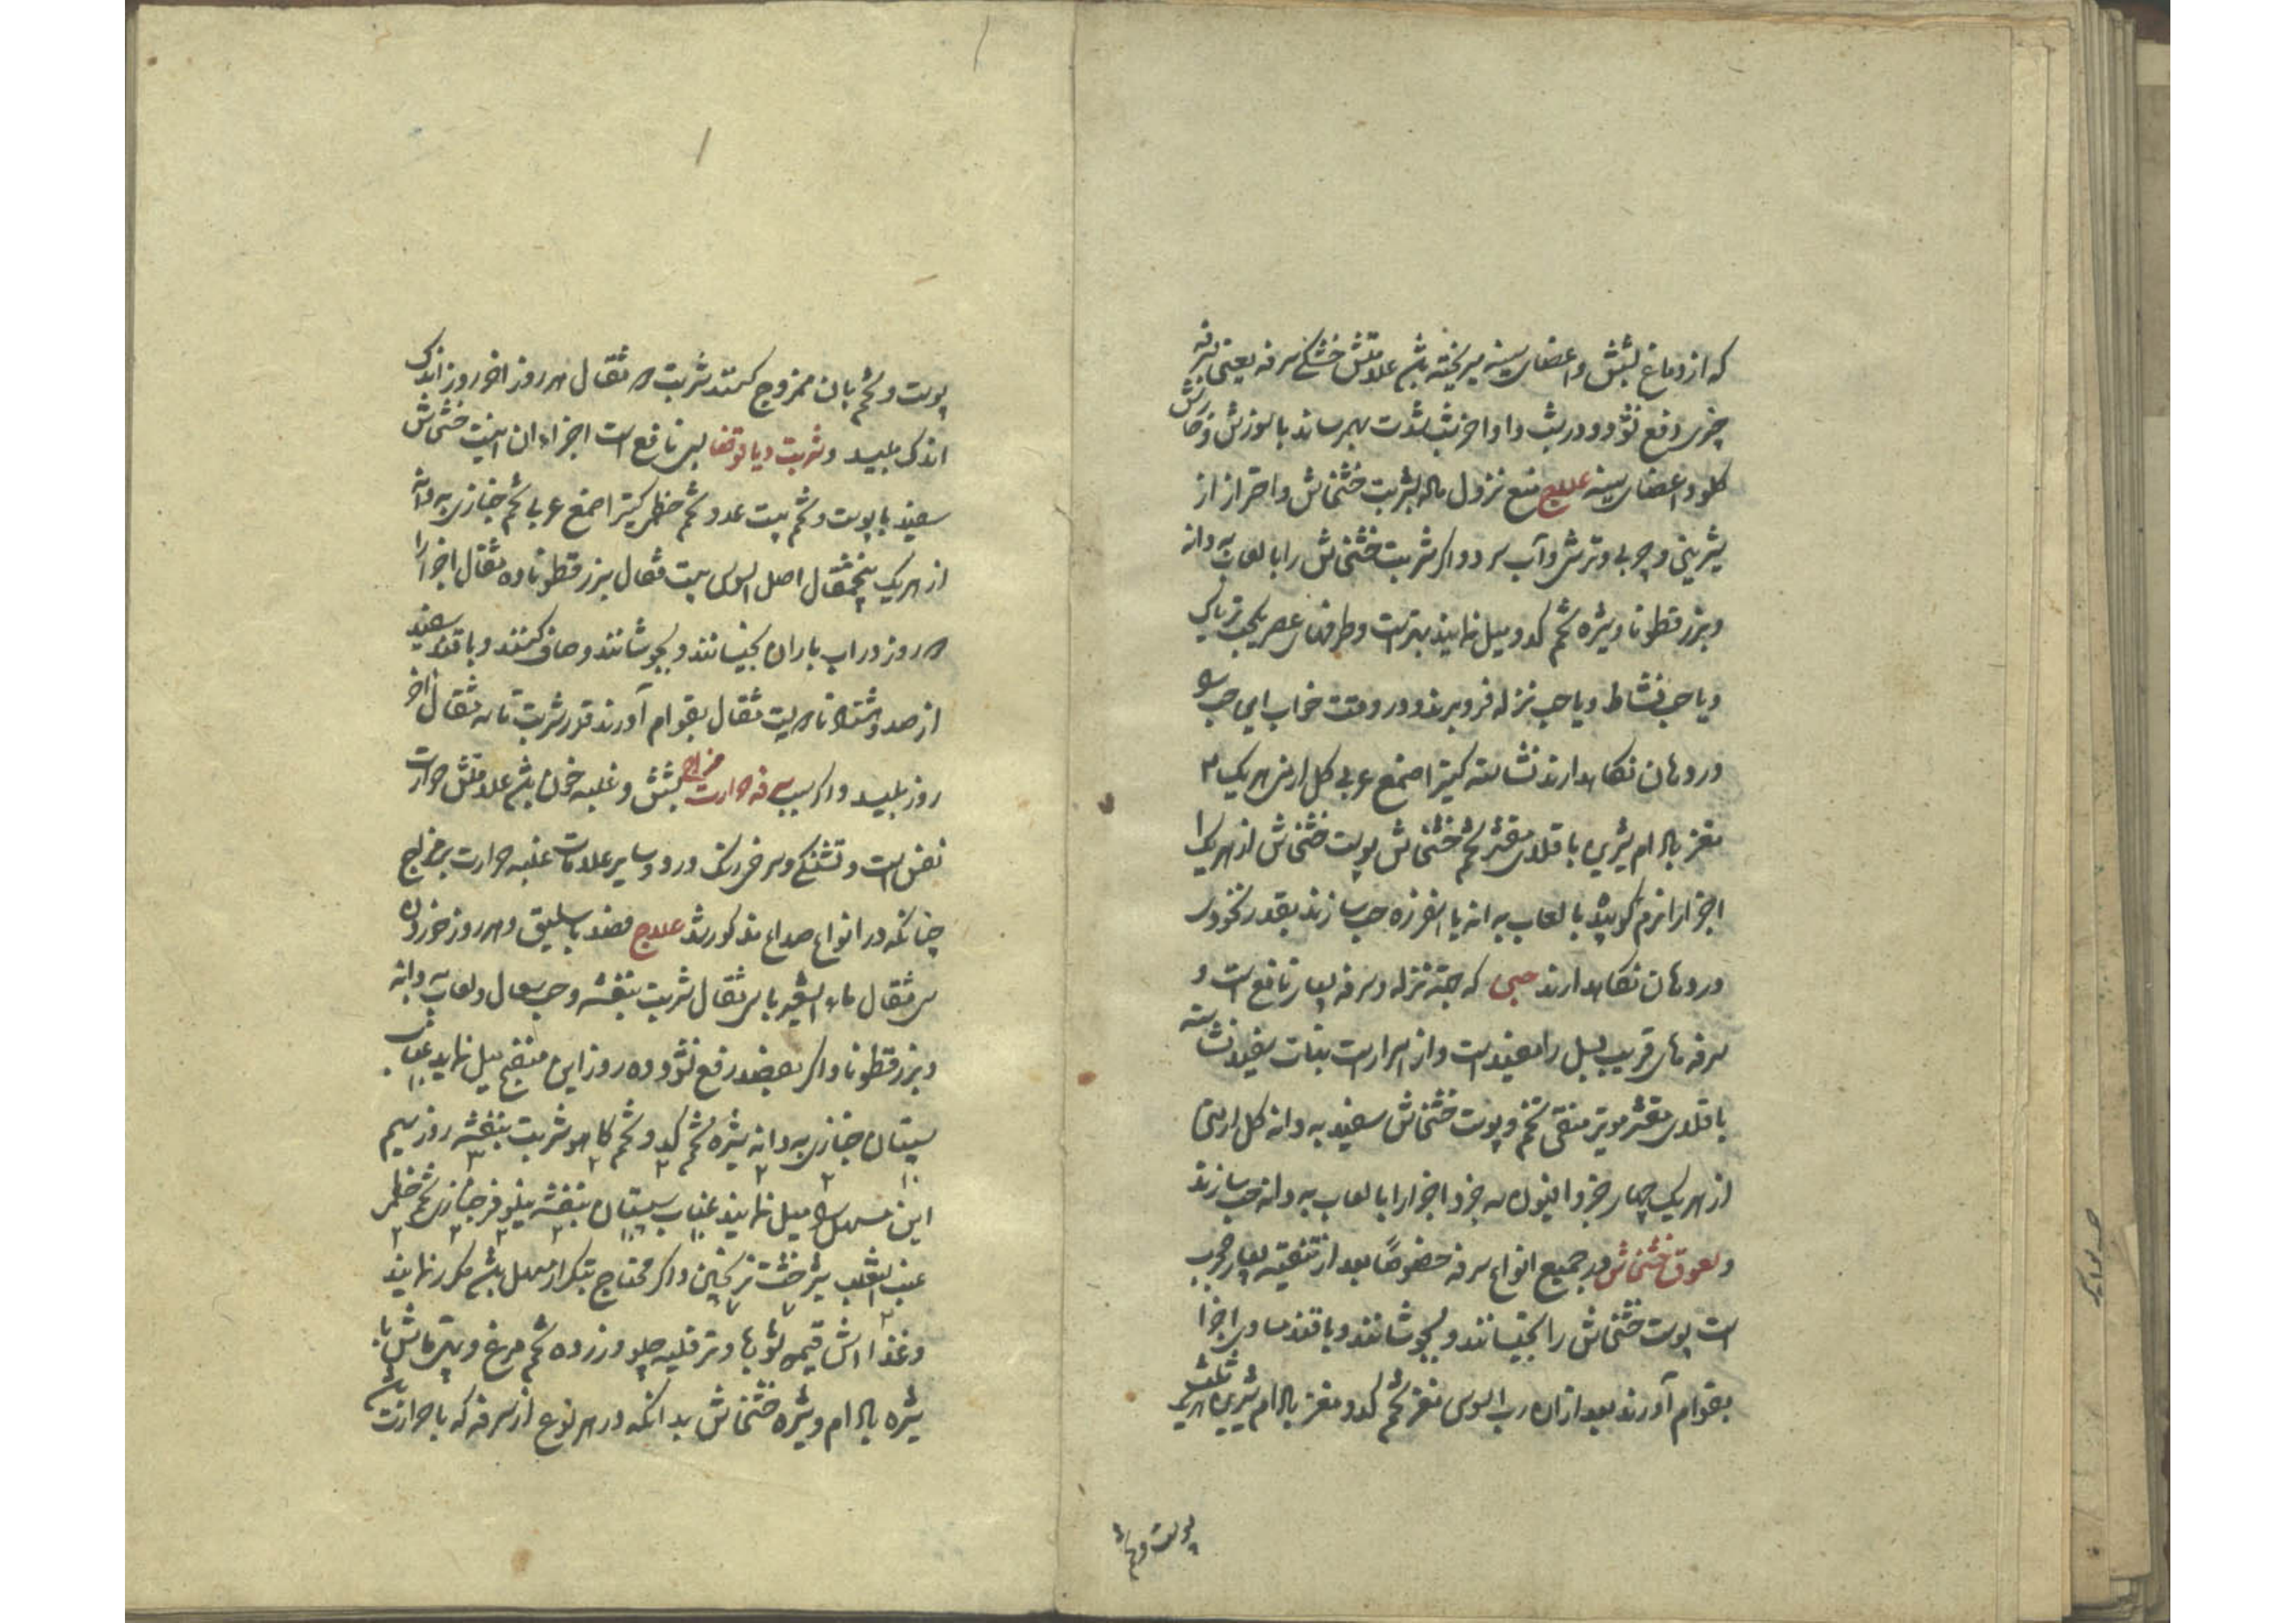 که از دماغ بشش و اعضای سینه میریخته باشد علامتش خشکی سرفه یعنی بسرفه
چیزی دفع نشود و در شب و اواخر شب شدت بهم رساند با سوزش و خارش
گلو و اعضای سینه علاج منع نزول ماده بشربت خشخاش و احتراز از
شیرینی و چربی و ترشی و آب سرد و اگر شربت خشخاش را با لعاب به دانه
و بزرقطونا و شیره تخم کدو میل نمایند بهتر است و طرفهای عصر یکحب تریاک
و یا حب نشاط و یا حب نزله فرو برند و در وقت خواب این حب را
در دهان نگاهدارند نشاسته کتیرا صمغ عربی گل ارمنی هر یک ۲
مغز بادام شیرین باقلای مقشر تخم خشخاش پوست خشخاش از هر یک ۱
اجزا را نرم کوبیده با لعاب به دانه یا اسفرزه حب سازند بقدر نخودی
در دهان نگاهدارند حبی که جهة نزله و سرفه بسیار نافع است و
سرفه های قریب بسل را مفید است و از اسرار است نبات سفید نشاسته
باقلای مقشر مویز منقی تخم و پوست خشخاش سفید به دانه گل ارمنی
از هر یک چهار جزو افیون سه جزو اجزا را با لعاب به دانه حب سازند
و لعوق خشخاش در جمیع انواع سرفه خصوصاً بعد از تنقیه بسیار مجرب
است پوست خشخاش را بخیسانند و بجوشانند و با قند مساوی اجزا
بقوام آورند بعد از آن رب السوس مغز تخم کدو مغز بادام شیرین هر یک ثلث
پوست و تخم
پوست و تخم بان ممزوج کنند شربت ۵ مثقال هر روز آخر روز اندک
اندک بلیسد و شربت دیاقوقا بسی نافع است اجزاء آن اینست خشخاش
سفید با پوست و تخم بیست عدد تخم خطمی کتیرا صمغ عربی تخم خبازی به دانه
از هر یک پنجمثقال اصل السوس بیست مثقال بزرقطونا ده مثقال اجزا را
۵ روز در آب باران بخیسانند و بجوشانند و صاف کنند و با قند سفید
از صد و هشتاد تا دویست مثقال بقوام آورند قدر شربت تا سه مثقال آخر
روز بلیسد و اگر سبب سرفه حرارت مزاج شش و غلبه خون باشد علامتش حرارت
نفس است و تشنگی و سرخی رنگ در رو و سایر علامات غلبه حرارت بر مزاج
چنانکه در انواع صداع مذکور شد علاج فصد باسلیق و هر روز خوردن
سی مثقال ماء الشعیر با سی مثقال شربت بنفشه و حب سعال و لعاب به دانه
و بزرقطونا و اگر بفصد رفع نشود ده روز این منضج میل نماید عناب ۱۰
سپستان ۱۰ خبازی ۲ به دانه ۲ شیره تخم کدو ۲ و تخم کاهو ۲ شربت بنفشه ۳ روز سیم
این مسهل را میل نمایند عناب ۱۰ سپستان ۱۰ بنفشه ۲ نیلوفر ۲ خبازی ۲ تخم خطمی ۲
عنب الثعلب ۲ شیرخشت ۷ ترنجبین ۷ و اگر محتاج بتکرار مسهل باشد مکرر نمایند
و غذا آش قیمه شوربا و ترقلیه چلو و زرده تخم مرغ و پتی ماش با
شیره بادام و شیره خشخاش بدانکه در هر نوع از سرفه که با حرارت باشد